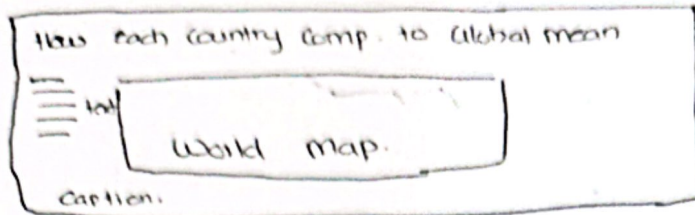 How each country comp. to Global mean
text
World map.
Caption.